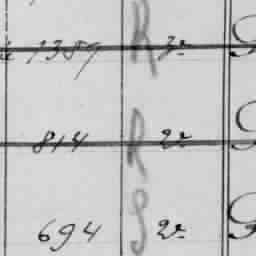 1387 R 3e G
814 R 2e G
694 S 2e G